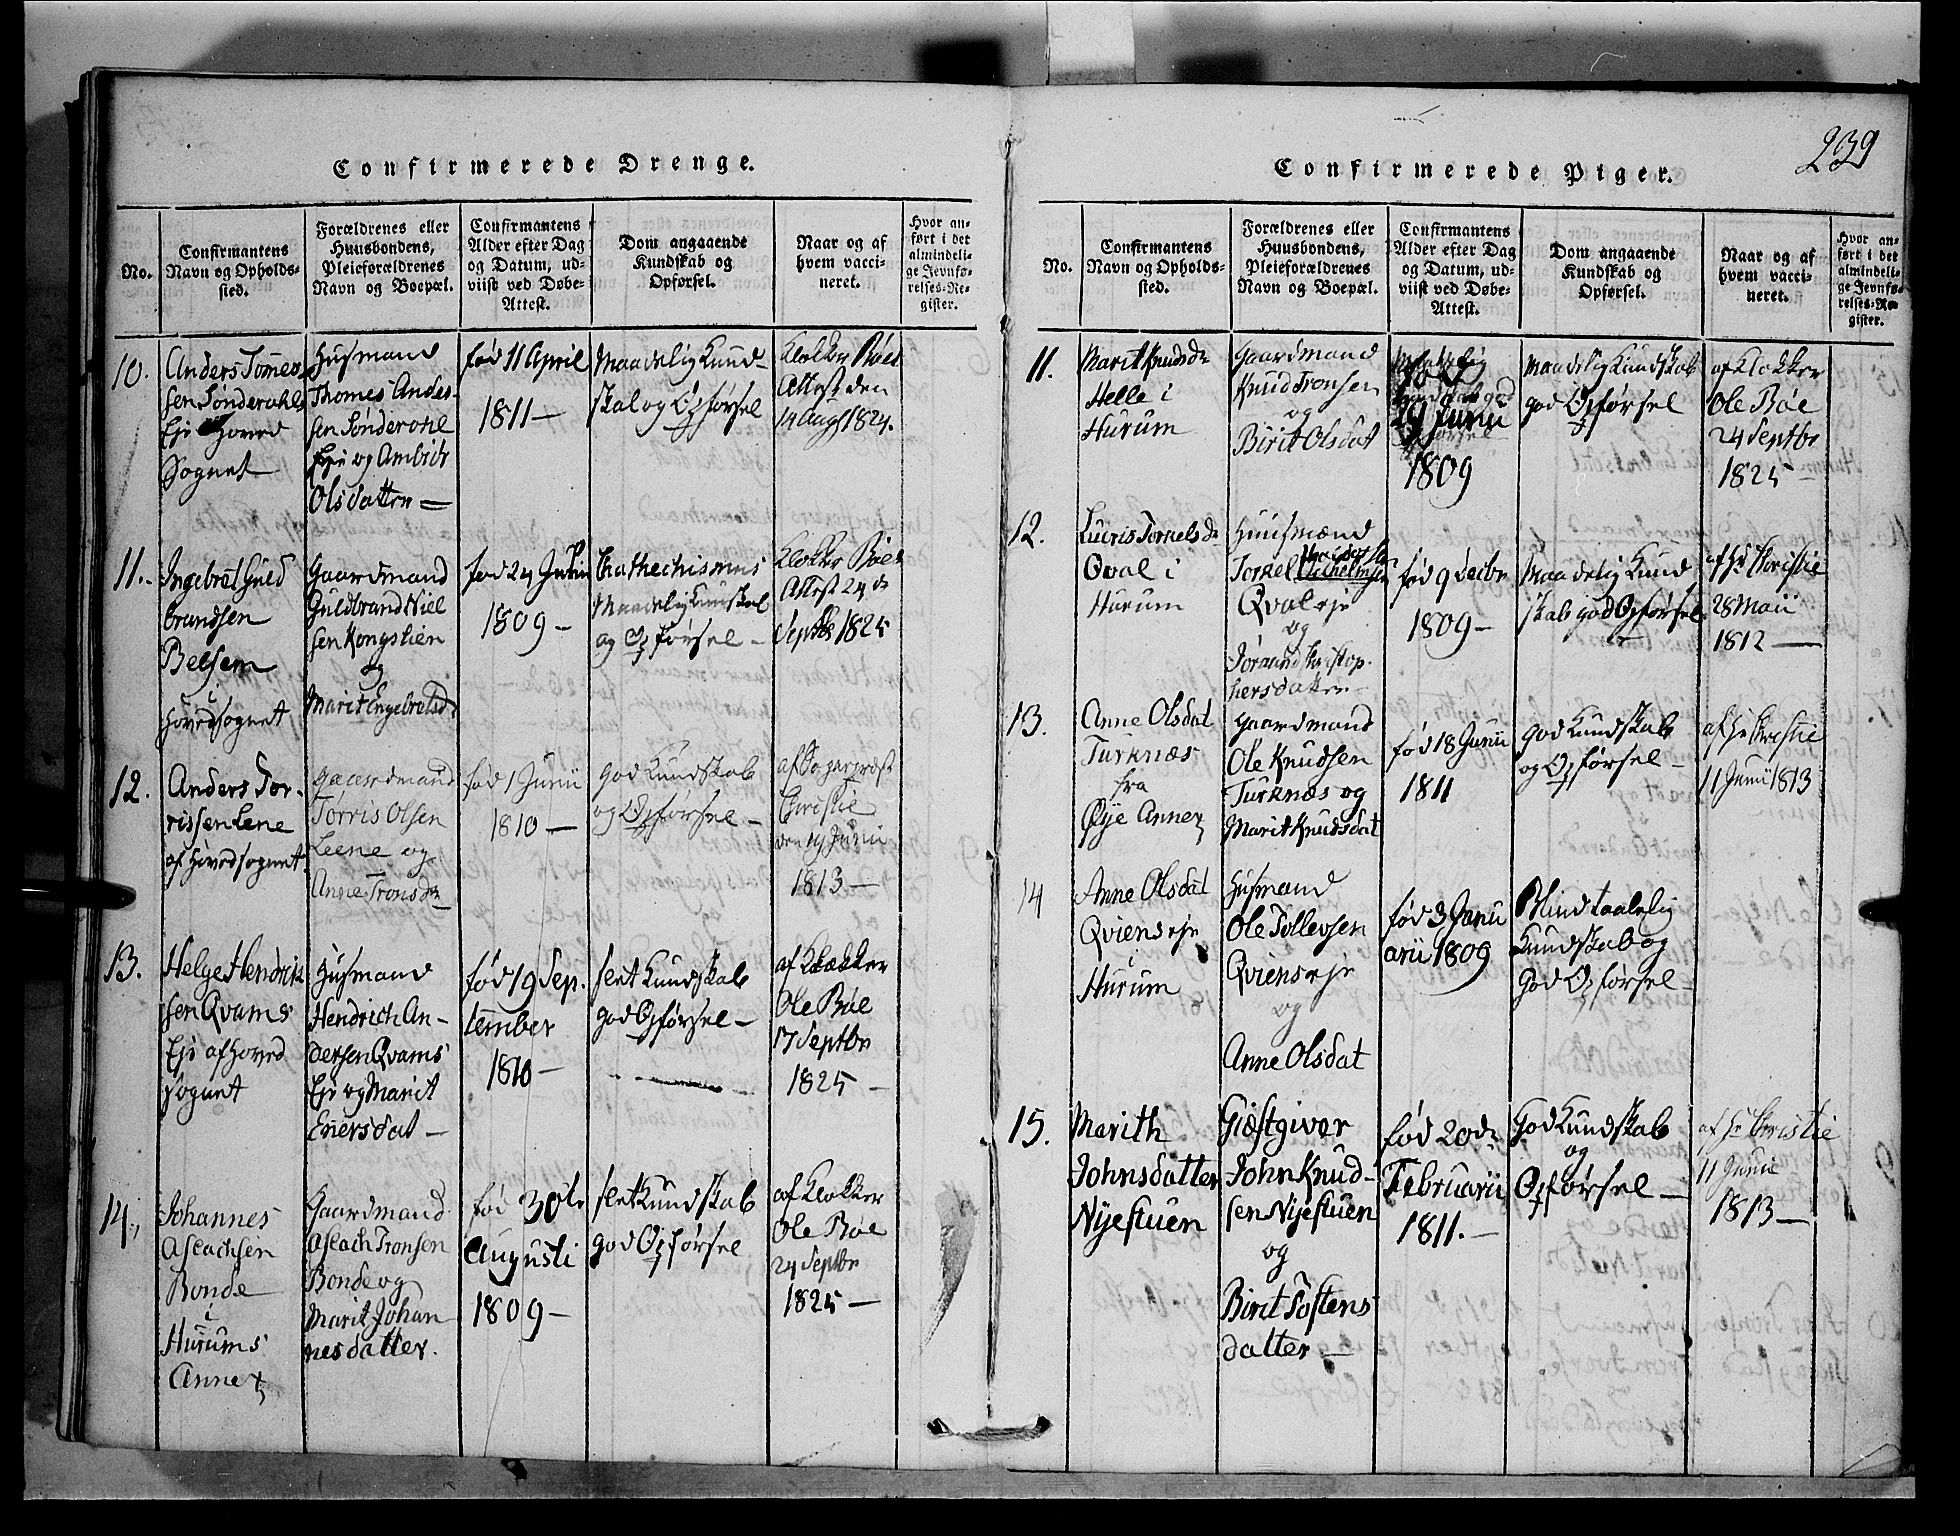 Confirmerede Drenge.
No.
Confirmantens
Navn og Opholds-
sted.
Forældrenes eller
Huusbondens,
Pleieforældrenes
Navn og Boepæl.
Confirmantens
Alder efter Dag
og Datum, ud-
viist ved Døbe-
Attest.
Dom angaaende
Kundskab og
Opførsel.
Naar og af
hvem vacci-
neret.
Hvor an-
ført i det
almindeli-
ge Jevnfø-
relses-Re-
gister.
10.
Anders Tomes
sen Sønderohls
Eje Hoved
Sognet
Husmand
Thomes Ander
sen Sønderohl
Eje og Ambiör
Olsdatter =
fød 11 April
1811 —
Maadelig Kund-
skab og Opførsel
Klokker Bøes
Attest den
14 Aug 1824.
11.
Ingebret Guld
brandsen
Belsem
i
Hovedsognet
Gaardmand
Guldbrand Niel
sen Kongslien
og
Marit Engebretsd.
fød 24 Junii
1809 —
Cathechismus
Maadelig Kunskab
og Opførsel —
Klokker Bøes
Attest 24 de
Septbr 1825
12.
Anders Tor-
rissen Lene
af Hovedsognet
Gaardmand
Torris Olsen
Leene og
Anne Tronsdr
fød 1 Junii
1810 —
god Kundskab
og Opførsel —
af Sogneprest
Christie
den 19 Junii
1813 —
13.
Helge Hendrik
sen Qvams
Eje af Hoved
sognet
Husmand
Hendrich An-
dersen Qvams
Eje og Marit
Enersdat —
fød 19 Sep-
tember
1810 —
slet Kundskab
god Opførsel —
af Klokker
Ole Bøe
17 Septbr
1825 —
14.
Johannes
Aslachsen
Bonde
i
Hurums
Annex
Gaardmand
Aslach Tronsen
Bonde og
Marit Johan
nesdatter.
fød 30te
Augusti
1809 —
slet Kundskab
god Opførsel
af Klokker
Ole Bøe
24 Septbr
1825 —
239
Confirmerede Piger.
No.
Confirmantens
Navn og Opholds-
sted.
Forældrenes eller
Huusbondens,
Pleieforældrenes
Navn og Boepæl.
Confirmantens
Alder efter Dag
og Datum, ud-
viist ved Døbe-
Attest.
Dom angaaende
Kundskab og
Opførsel.
Naar og af
hvem vacci-
neret.
Hvor an-
ført i det
almindeli-
ge Jevnfø-
relses-Re-
gister.
11.
Marit Knudsdr
Helle i
Hurum
Gaardmand
Knud Tronsen
og
Birit Olsdat
24 Junii
1809
Maadelig Kundskab
god Opførsel
af Klokker
Ole Bøe
24 Septbr
1825 —
12.
Lucris Torkelsdr
Qval i
Hurum
Huusmand
Torkel
Qvalseje
og
Jørand Christop-
hersdatter
fød 9 Decbr
1809 —
Maadelig Kund
skab god Opførsel
af Hr Christie
28 Maii
1812 —
13.
Anne Olsdat
Turknæs
fra
Øye Annex
Gaardmand
Ole Knudsen
Turknæs og
Marit Knudsdat
fød 18 Junii
1811
god Kundskab
og Opførsel —
af Hr Christie
11 Junii 1813
14
Anne Olsdat
Qvienseje
i
Hurum
Husmand
Ole Tollevsen
Qvienseje
og
Anne Olsdat
fød 3 Janu
arii 1809
Mindtaalelig
Kundskab og
God Opførsel —
15.
Marith
Johnsdatter
Nÿestuen
Giæstgiver
John Knud-
sen Nÿestuen
og
Birit Tostens
datter —
fød 20de
Februarii
1811. —
God Kundskab
og
Opførsel —
af Hr Christie
11 Junii
1813 —